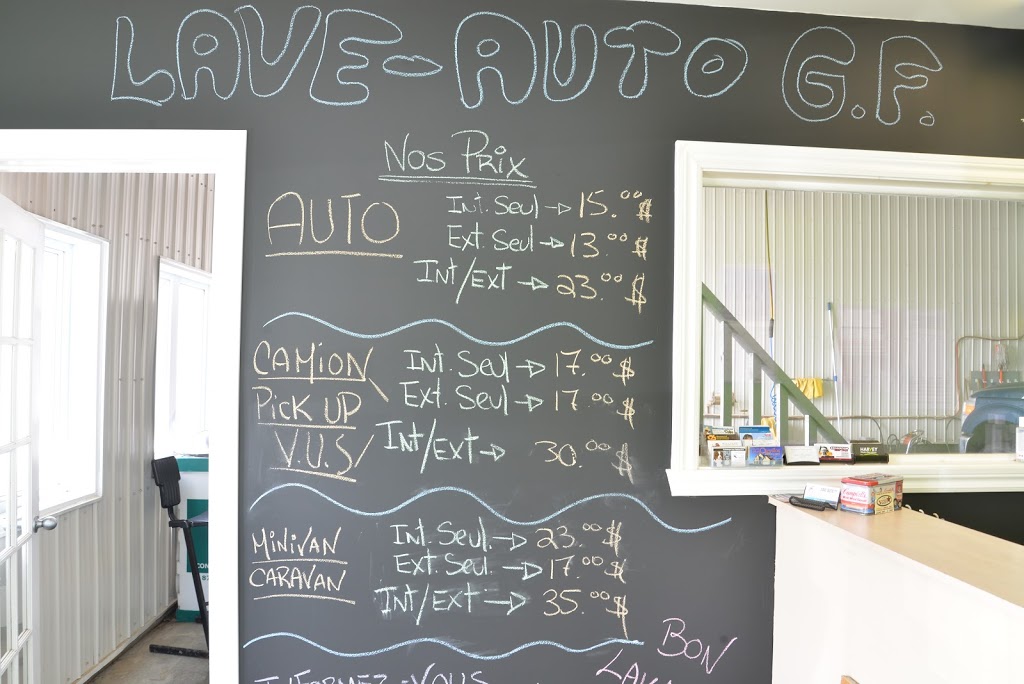 LAVE-AUTO G.F.
Nos Prix
AUTO
Int. Seul → 15.00 $
Ext. Seul → 13.00 $
Int/Ext → 23.00 $
CAMION
Pick UP
V.U.S
Int. Seul → 17.00 $
Ext. Seul → 17.00 $
Int/Ext → 30.00 $
MINIVAN
CARAVAN
Int. Seul. → 23.00 $
Ext. Seul. → 17.00 $
Int/Ext → 35.00 $
INFORMEZ-VOUS
BON